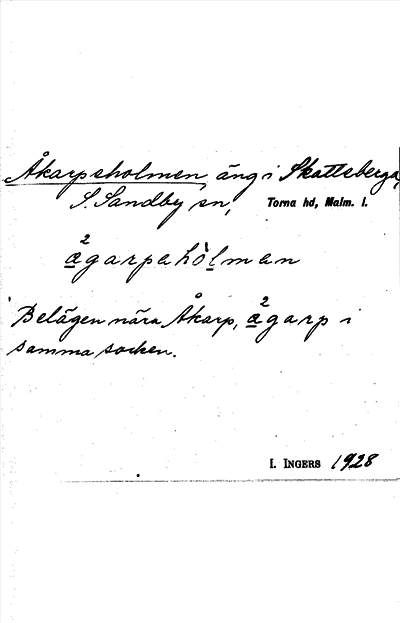 Åkarpsholmen, äng i Skatteberga,
S. Sandby sn, Torna hd, Malm. l.
²agarpahòlmen
Belägen nära Åkarp, ²agarp i
samma socken.
I. INGERS 1928